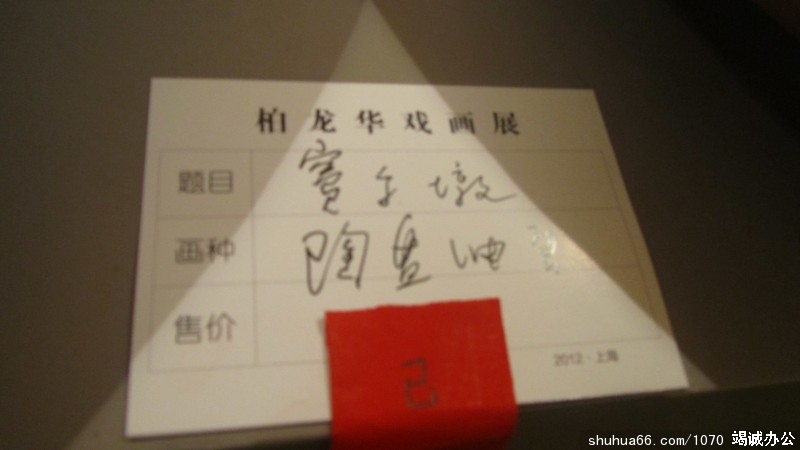 柏龙华戏画展
题目 窦尔墩
画种 陶瓷油
售价
2012·上海
已
shuhua66.com/1070 竭诚办公